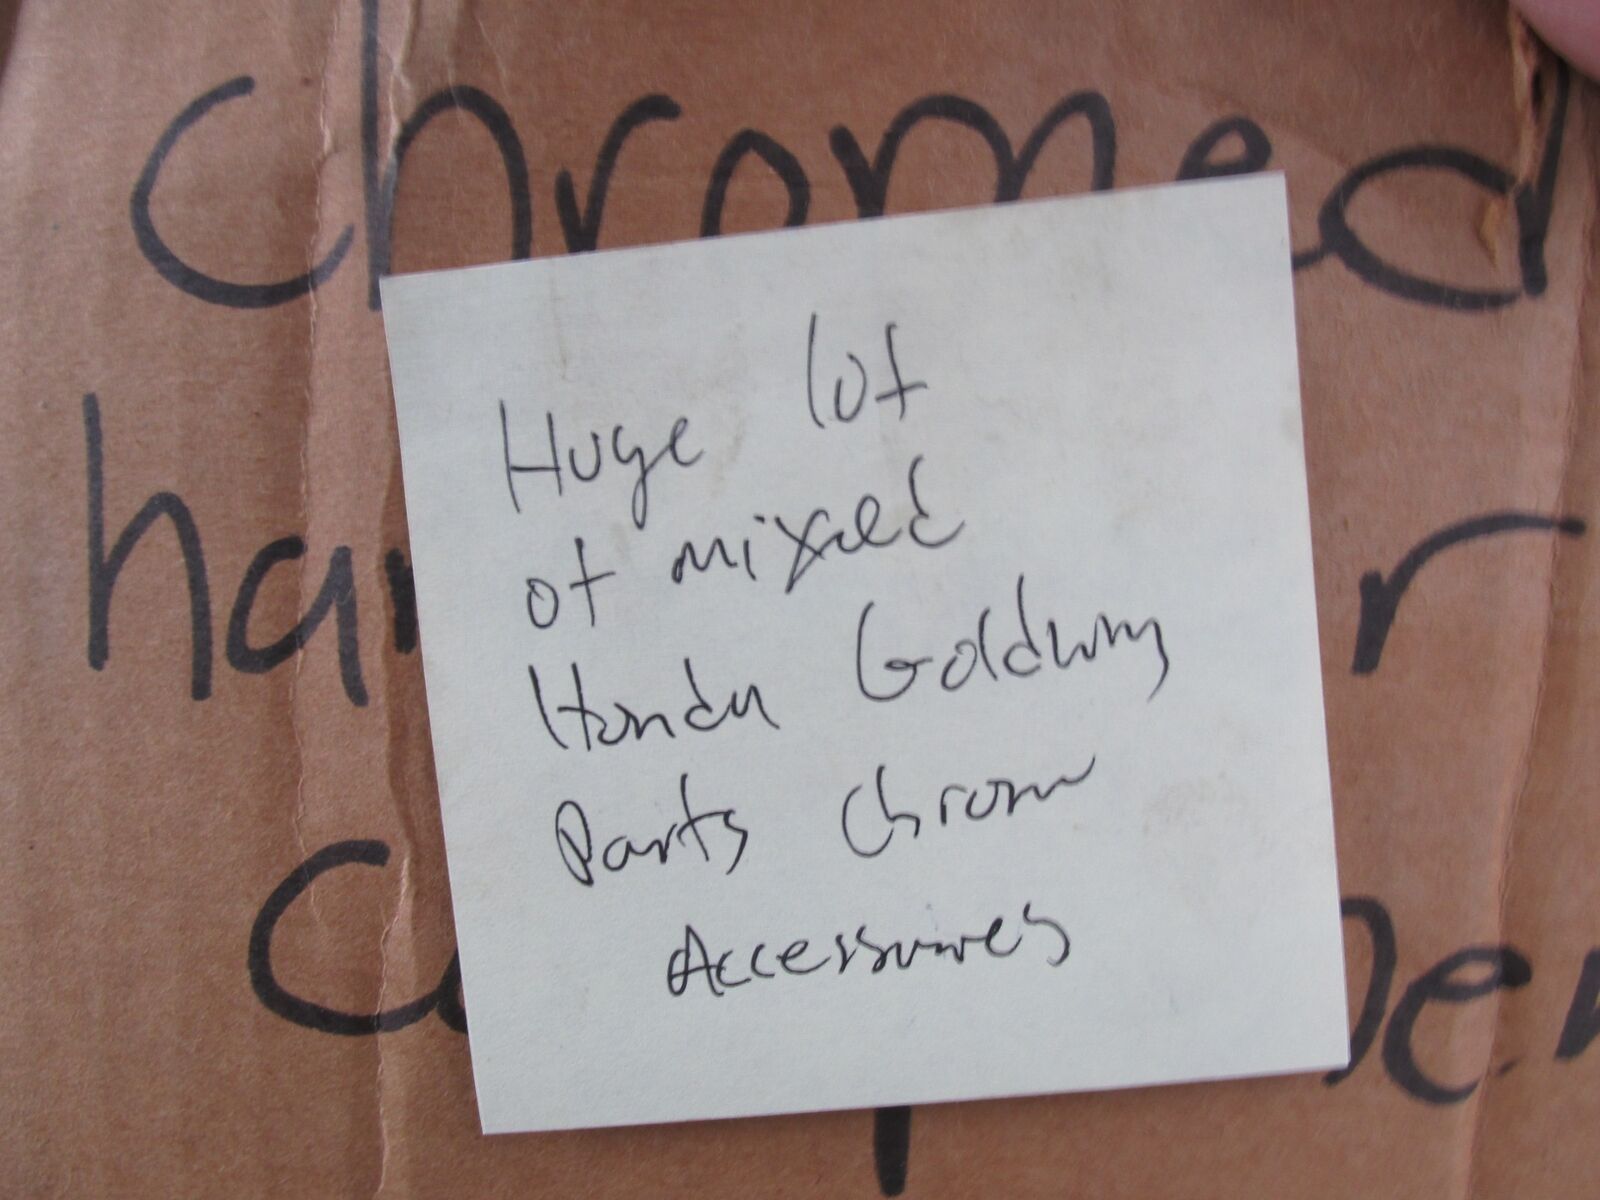 chromed
Huge lot
of mixed
Honda Goldwing
Parts Chrome
Accessories